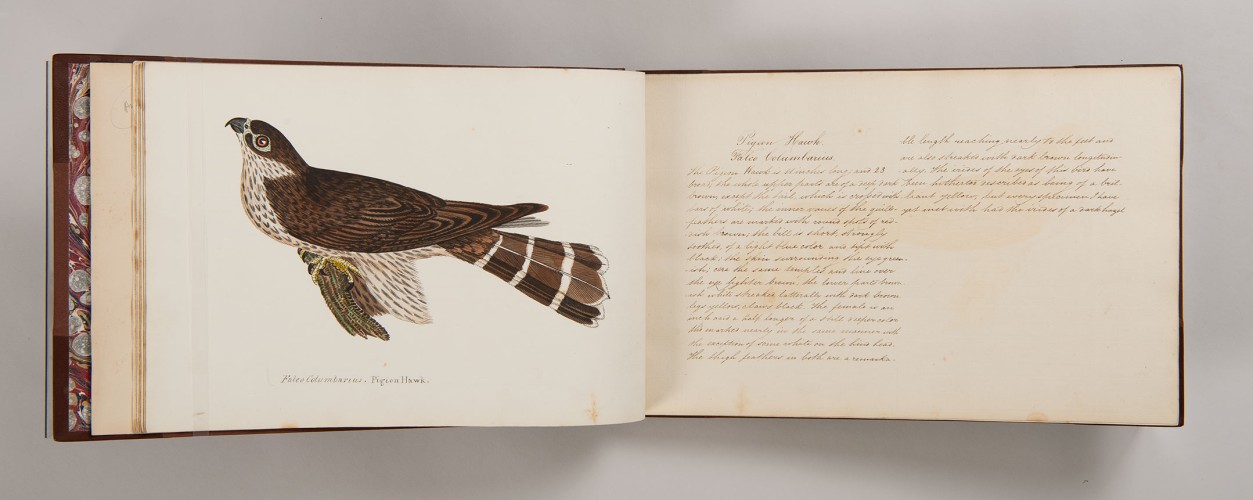 Falco Columbarius. Pigeon Hawk.
Pigeon Hawk.
Falco Columbarius.
The Pigeon Hawk is 11 inches long, and 23
broad, the whole upper parts are of a deep dark
brown, except the tail, which is crossed with
bars of white, the inner vanes of the quill
feathers are marked with round spots of red-
ish brown; the bill is short, strongly
toothed, of a light blue color and tipt with
black; the skin surrounding the eye green-
ish; cere the same temples and line over
the eye lighter brown, the lower parts brown
ish white streaked latterally with dark brown
legs yellow, claws black. The female is an
inch and a half longer of a still deeper color
tho marked nearly in the same manner with
the exception of some white on the hind head.
The thigh feathers in both are a remarka-
ble length reaching nearly to the feet and
are also streaked with dark brown longitudin-
ally. The irides of the eyes of this bird have
been hitherto described as being of a bril-
liant yellow, but every specimen I have
yet met with had the irides of a dark hazel